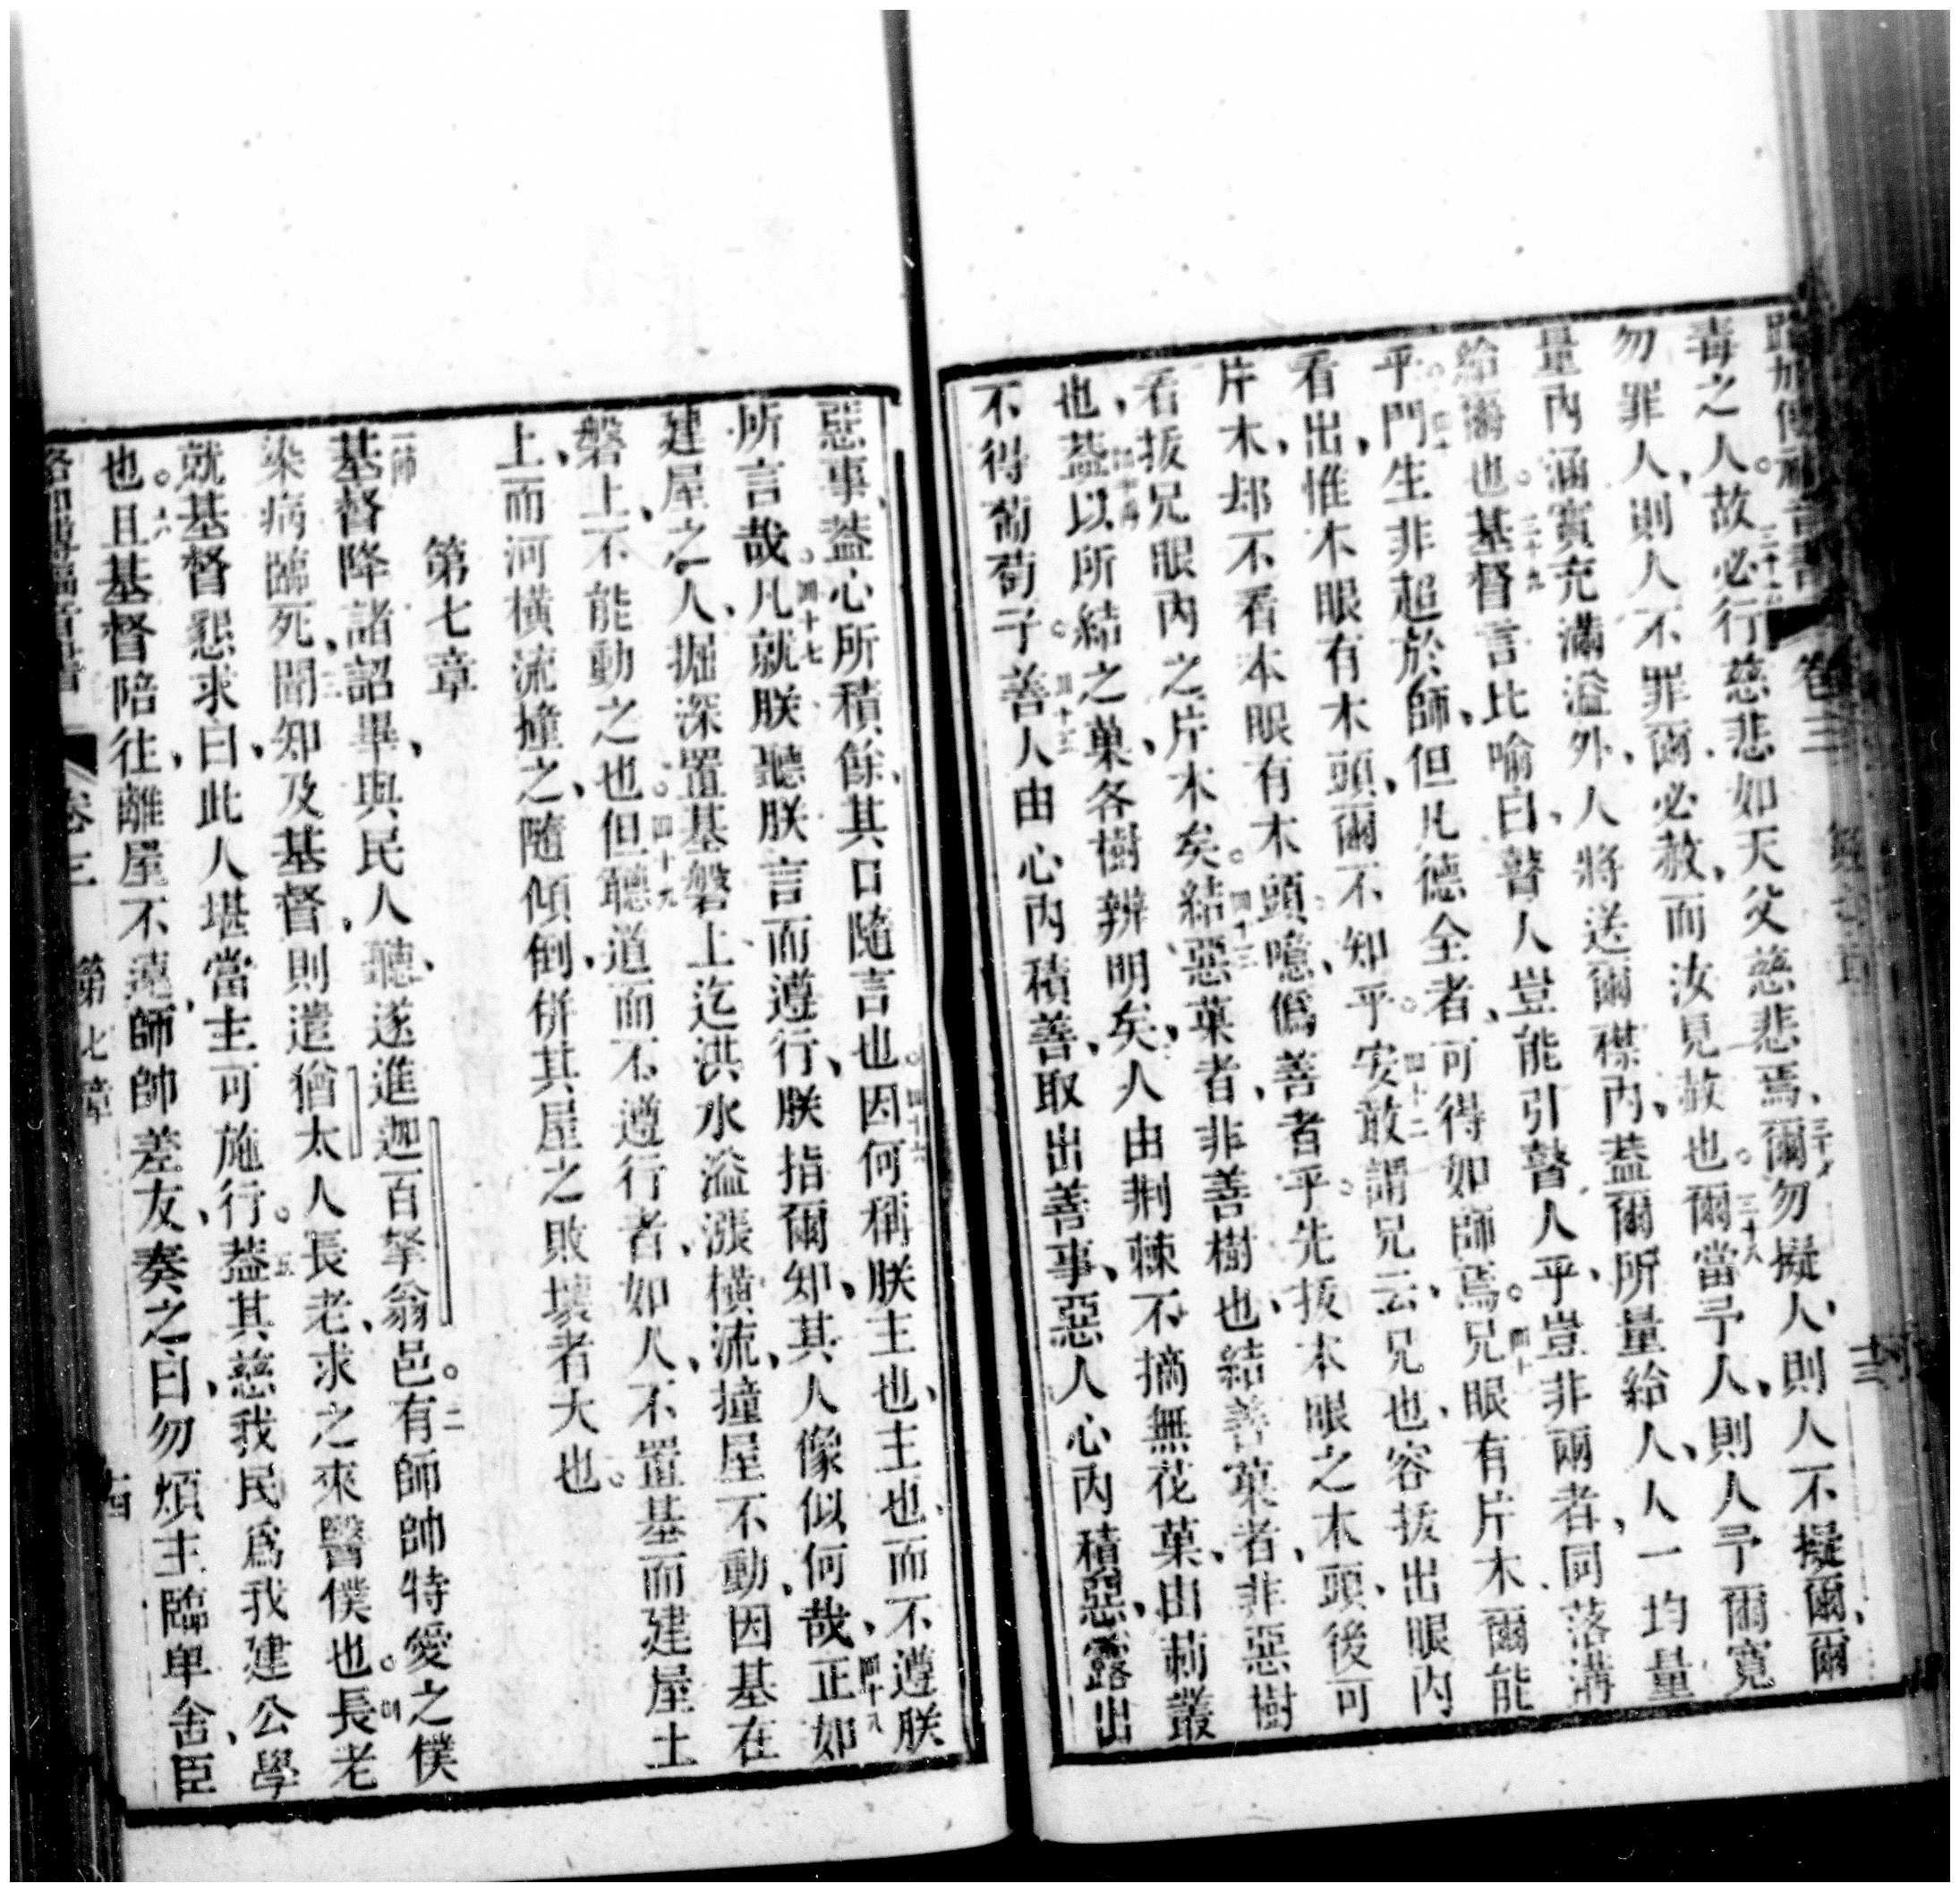 毒之人。故必行慈悲如天父慈悲焉、爾勿擬人、則人不擬爾、爾
勿罪人、則人不罪爾、爾必赦、而汝見赦也。三十八爾當予人、則人予爾寬
量內涵實充滿溢外、人將送爾襟內、蓋爾所量給人、人一均量
給爾也。三十九基督言比喻曰、瞽人豈能引瞽人乎、豈非兩者同落溝
乎。門生非超於師、但凡德全者、可得如師焉。四十兄眼有片木爾能
看出、惟木眼有木頭、爾不知乎。四十二安敢謂兄云、兄也、容拔出眼內
片木、却不看本眼有木頭。噫、偽善者乎。先拔本眼之木頭、後可
看拔兄眼內之片木矣。四十三結惡菓者、非善樹也、結善菓者、非惡樹
也、蓋以所結之菓、各樹辨明矣、人由荆棘不摘無花菓、由莿叢
不得葡萄子。善人由心內積善、取出善事、惡人心內積惡、露出
卷三
十三
惡事、蓋心所積餘、其口隨言也。四十六因何稱朕主也、主也、而不遵朕
所言哉。四十七凡就朕聽朕言而遵行、朕指爾知、其人像似何哉、四十八正如
建屋之人、掘深置基磐上、迄洪水溢漲橫流、撞屋不動、因基在
磐上、不能動之也。四十九但聽道而不遵行者、如人、不置基而建屋土
上、而河橫流撞之、隨傾倒、併其屋之敗壞者大也。
第七章
一節基督降諸詔畢、與民人聽、遂進迦百拏翁邑。二有師帥特愛之僕
染病臨死、三聞知及基督、則遣猶太人長老、求之來醫僕也。四長老
就基督懇求曰、此人堪當主可施行。五蓋其慈我民爲我建公學
也。六且基督陪往、離屋不遠、師帥差友、奏之曰、勿煩主臨卑舍、臣
卷三
第七章
十四